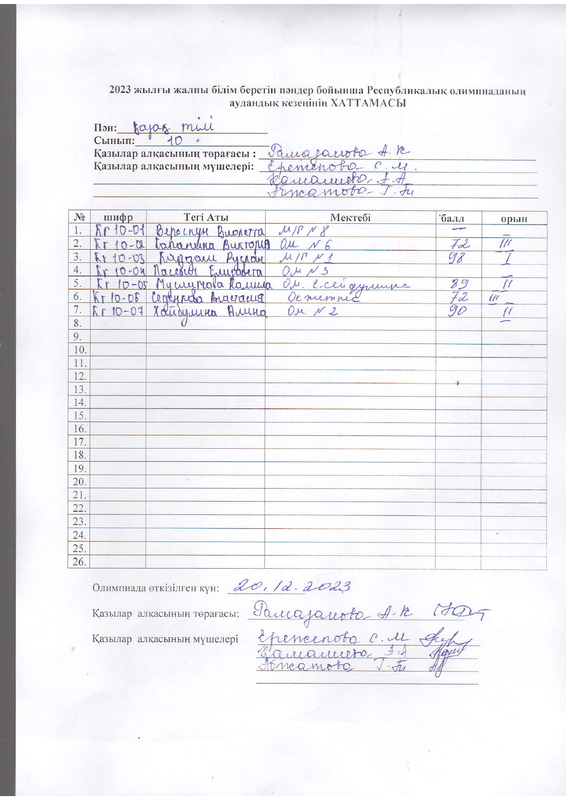 2023 жылғы жалпы білім беретін пәндер бойынша Республикалық олимпиаданың
аудандық кезенінің ХАТТАМАСЫ
Пән: қазақ тілі
Сынып: 10
Қазылар алқасының төрағасы : Рамазанова А. К
Қазылар алқасының мүшелері: Ережепова С. М.
Камалиева А
Г.
№ шифр Тегі Аты Мектебі балл орын
1. Кг 10-01 Виолетта М/Г N 8 —
2. Кг 10-02 Виктория Ом N 6 72 III
3. Кг 10-03 Руслан М/Г N 1 98 I
4. Кг 10-04 Елизавета Ом N 3
5. Кг 10-05 Камила Ом. 89 II
6. Кг 10-06 Анастасия 72 III
7. Кг 10-07 Хайбулина Алина Ом N 2 90 II
8.
9.
10.
11.
12.
13.
14.
15.
16.
17.
18.
19.
20.
21.
22.
23.
24.
25.
26.
Олимпиада өткізілген күн: 20.12.2023
Қазылар алқасының төрағасы: Рамазанова А. К
Қазылар алқасының мүшелері Ережепова С. М
Камалиева А
Г.